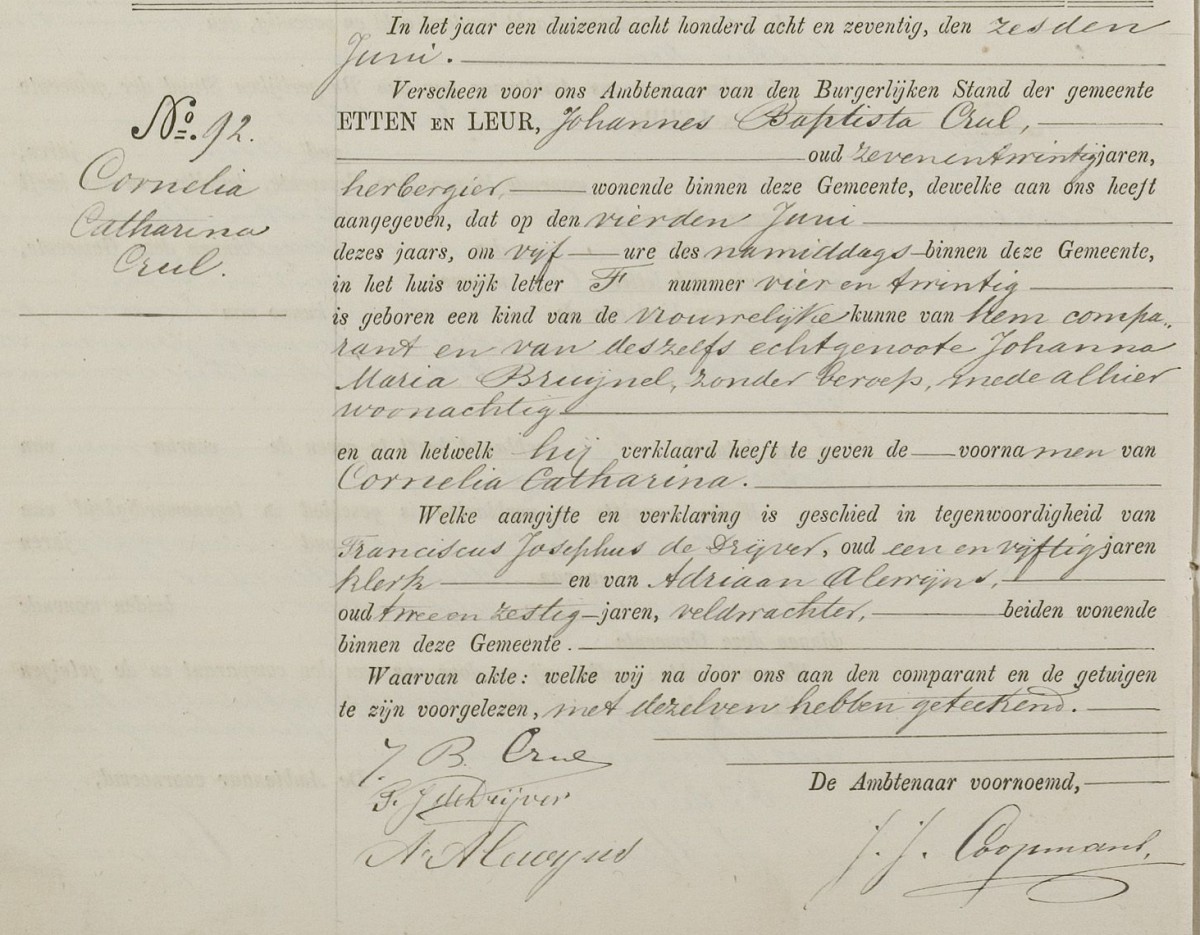 In het jaar een duizend acht honderd acht en zeventig, den zesden
Juni.
Verscheen voor ons Ambtenaar van den Burgerlijken Stand der gemeente
No. 92.
ETTEN EN LEUR, Johannes Baptista Crul,
oud zevenentwintig jaren,
Cornelia
herbergier, wonende binnen deze Gemeente, dewelke aan ons heeft
Catharina
aangegeven, dat op den vierden Juni
Crul.
dezes jaars, om vijf ure des namiddags binnen deze Gemeente,
in het huis wijk letter F nummer vier en twintig
is geboren een kind van de vrouwelijke kunne van hem compa„
rant en van deszelfs echtgenoote Johanna
Maria Bruynel, zonder beroep, mede alhier
woonachtig
en aan hetwelk hij verklaard heeft te geven de voornamen van
Cornelia Catharina.
Welke aangifte en verklaring is geschied in tegenwoordigheid van
Franciscus Josephus de Drijver, oud een en vijftig jaren
klerk en van Adriaan Alewijns,
oud twee en zestig jaren, veldwachter, beiden wonende
binnen deze Gemeente.
Waarvan akte: welke wij na door ons aan den comparant en de getuigen
te zijn voorgelezen, met dezelven hebben geteekend.
J. B. Crul
F. J. de Drijver
De Ambtenaar voornoemd,
A. Alewyns
J. J. Coopmans.